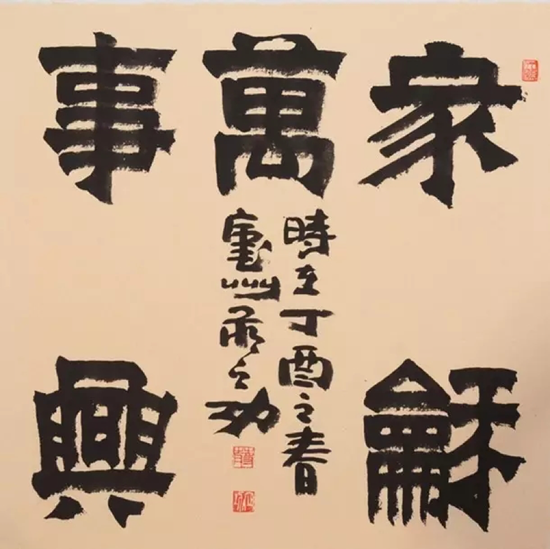 家龢
萬
事興
時在丁酉之春
之